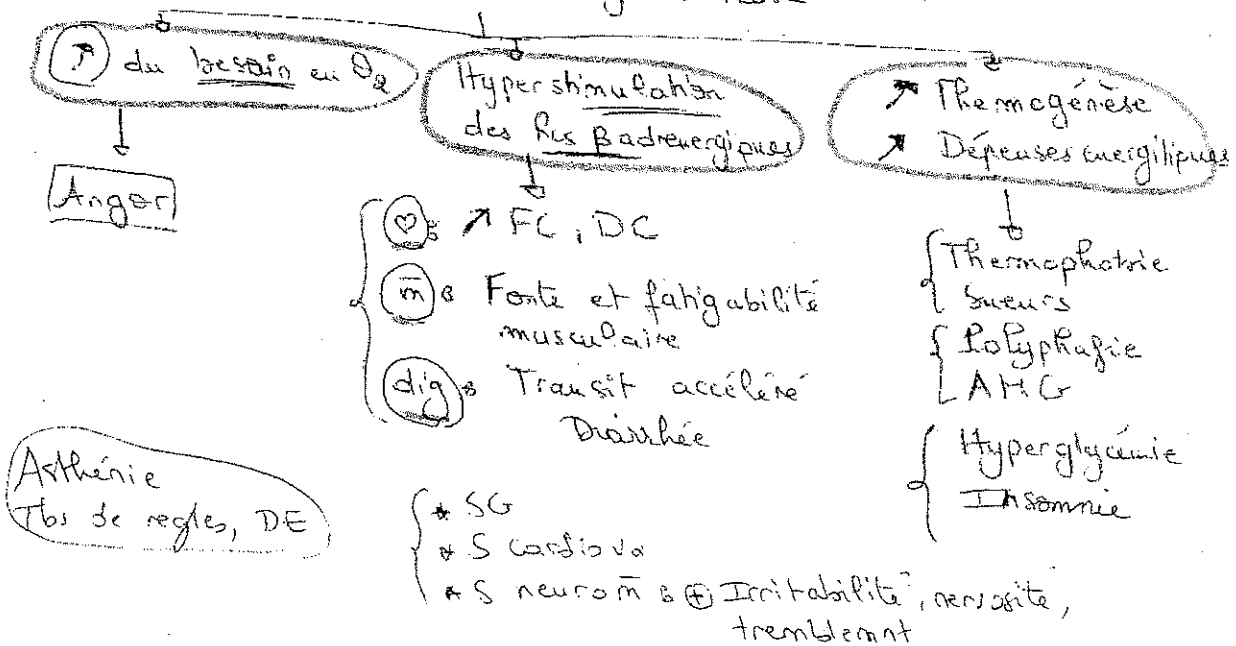 ↗ du besoin en O2
Anger
Hyperstimulation
des Rcs βadrenergiques
♡ : ↗ FC, DC
m̄ : Fonte et fatigabilité
musculaire
dig : Transit accéléré
Diarrhée
↗ Themogénèse
↗ Dépenses energitiques
Thermophobie
Sueurs
Polyphagie
AMG
Hyperglycémie
Insomnie
Asthénie
Tbs de regles, DE
* SG
* S cardiova
* S neurom̄ : ⊕ Irritabilité, nervosité,
tremblemnt